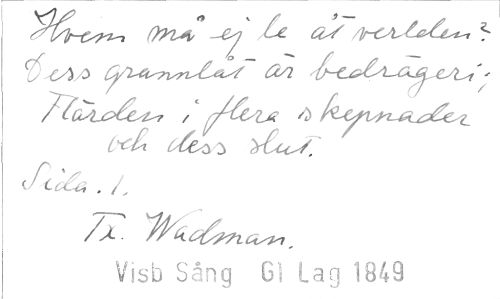 Hvem må ej le åt verlden?
Dess grannlåt är bedrägeri;
Flärden i flera skepnader
och dess slut.
Sida. 1.
Tx. Wadman.
Visb Sång Gl Lag 1849